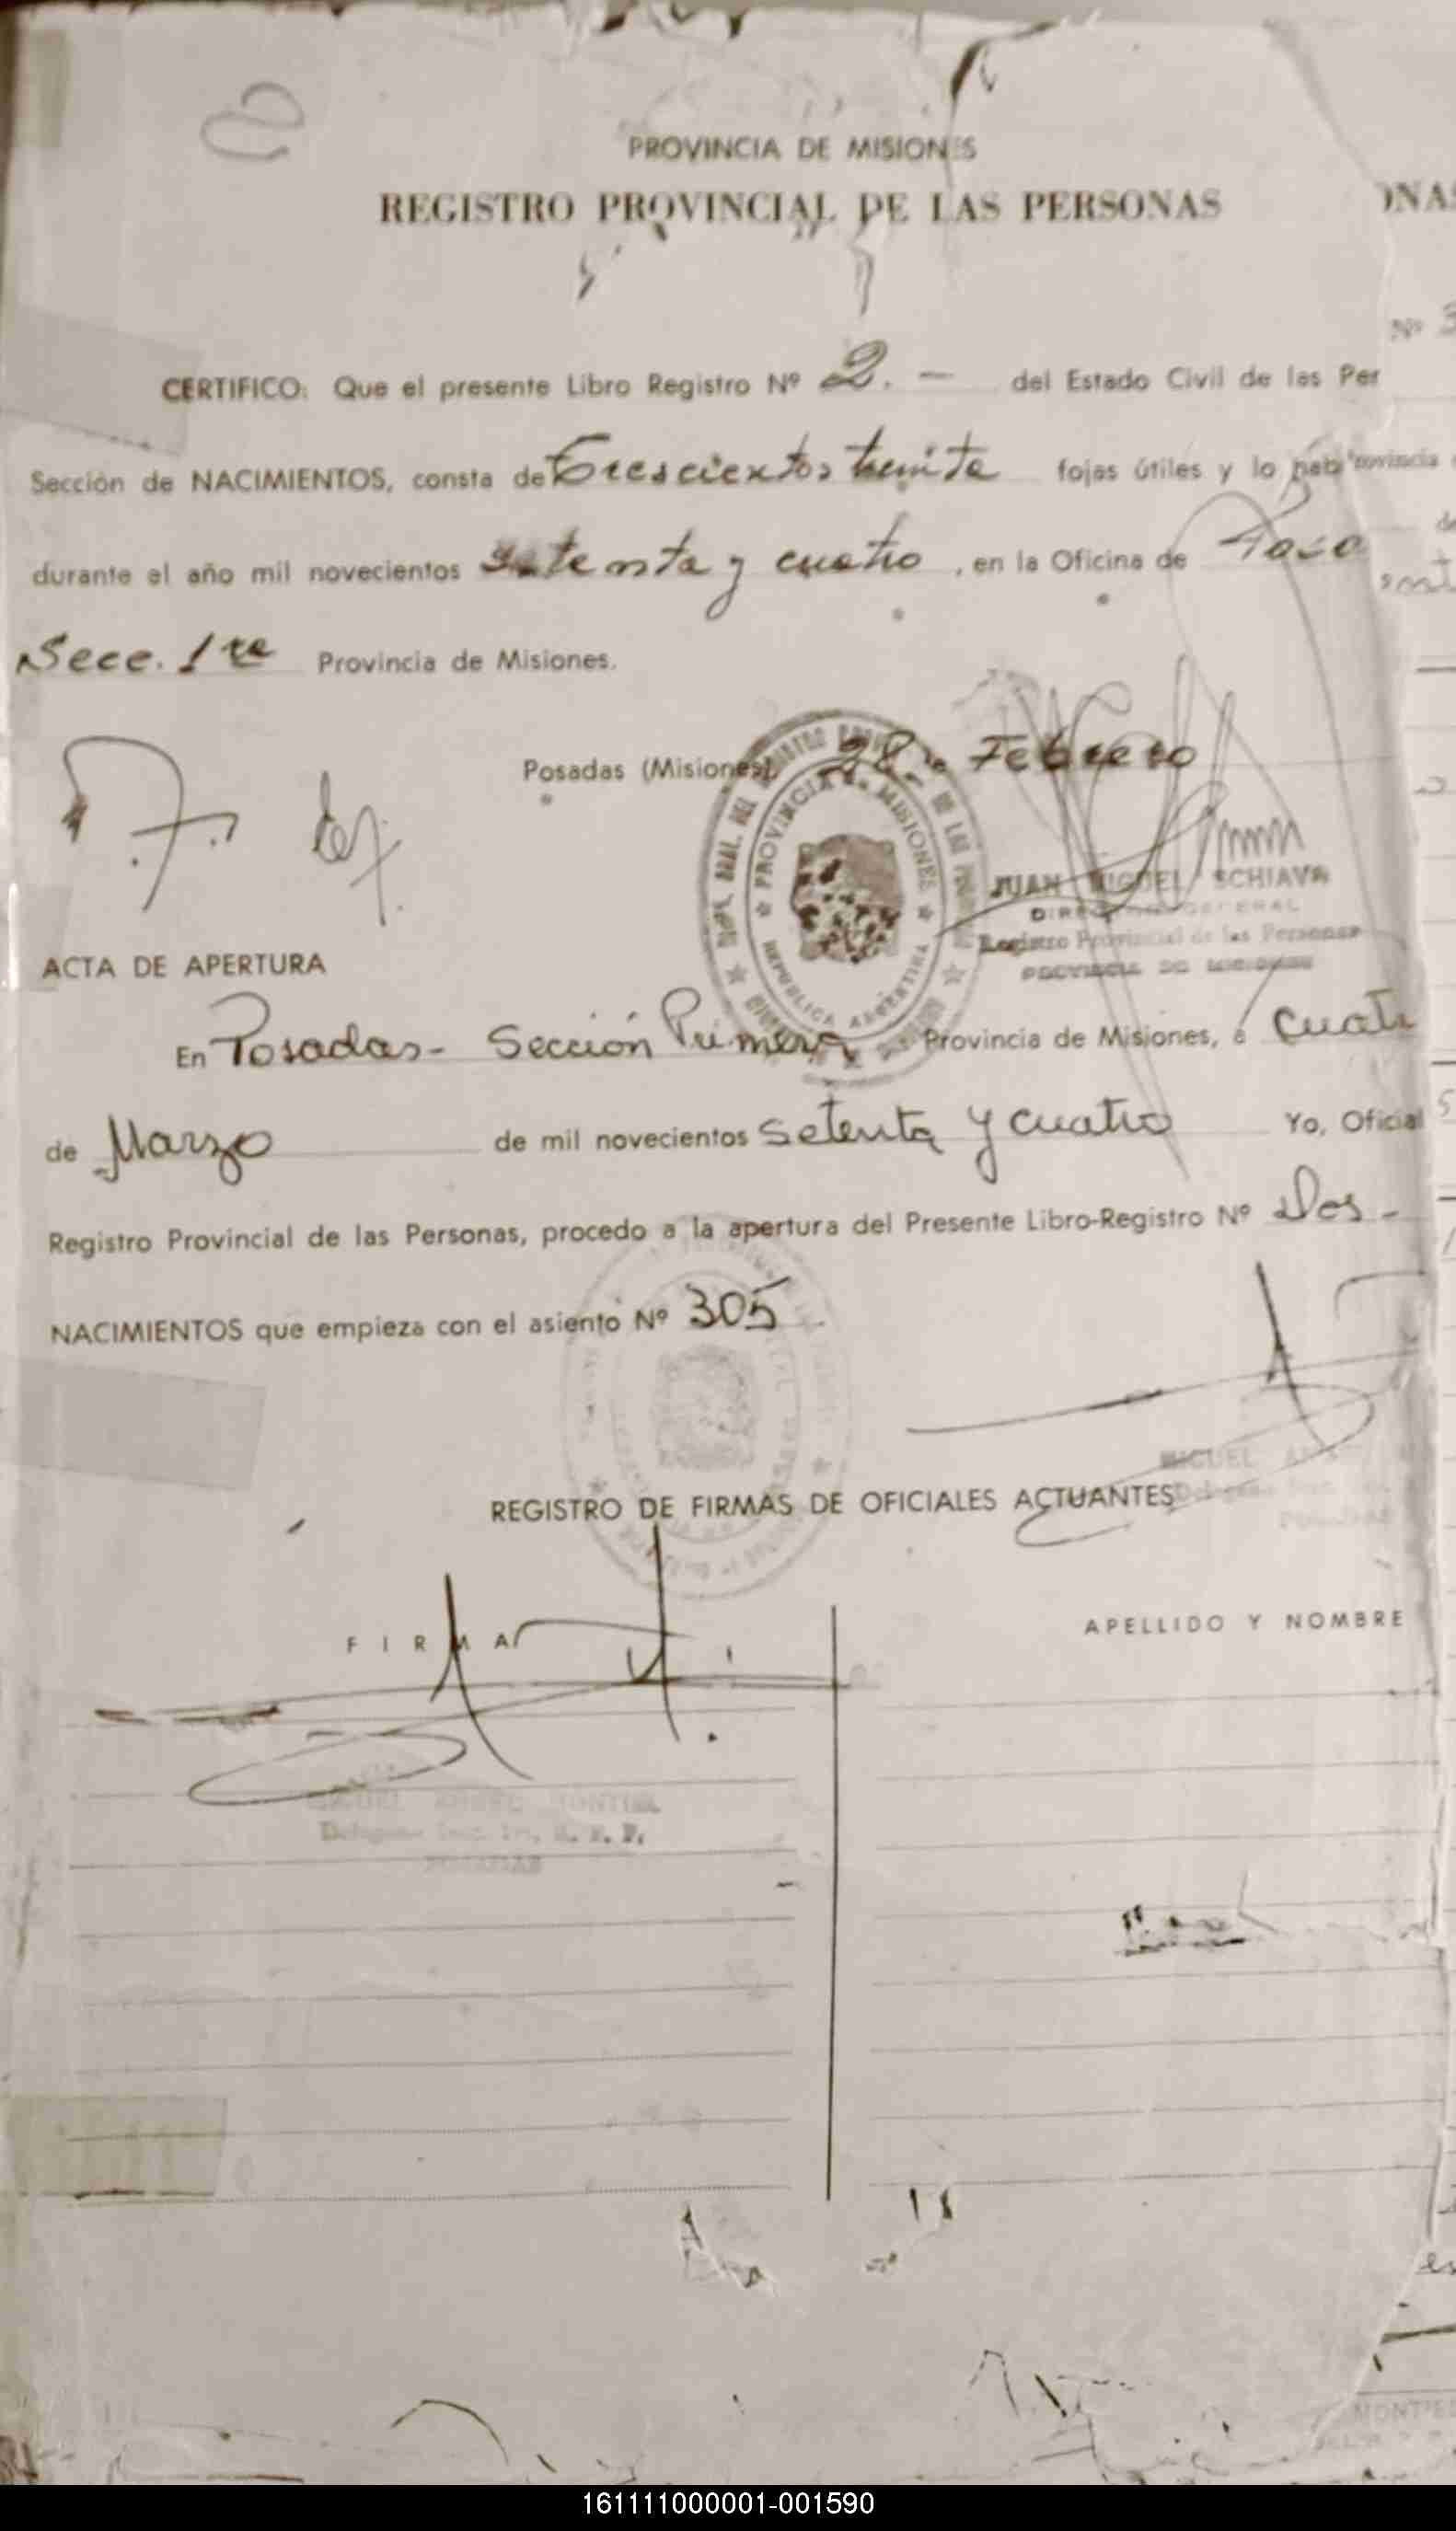 PROVINCIA DE MISIONES
REGISTRO PROVINCIAL DE LAS PERSONAS
ONAS
Nº 3
CERTIFICO: Que el presente Libro Registro Nº 2. - del Estado Civil de las Per
Sección de NACIMIENTOS, consta de Trescientos treinta fojas útiles y lo habi
rovincia
durante el año mil novecientos setenta y cuatro, en la Oficina de Posa
Secc. 1ra Provincia de Misiones.
Posadas (Misiones), 28 - Febrero
DEL
DE LAS
PROVINCIA DE MISIONES
REPUBLICA ARGENTINA
JUAN MIGUEL SCHIAVA
DIRECTOR GENERAL
Registro Provincial de las Personas
PROVINCIA DE MISIONES
ACTA DE APERTURA
En Posadas - Sección Primera Provincia de Misiones, a Cuatr
de Marzo de mil novecientos setenta y cuatro Yo, Oficial
Registro Provincial de las Personas, procedo a la apertura del Presente Libro-Registro Nº Dos -
NACIMIENTOS que empieza con el asiento Nº 305
MIGUEL
REGISTRO DE FIRMAS DE OFICIALES ACTUANTES
FIRMA
APELLIDO Y NOMBRE
MIGUEL ANGEL MONTIEL
POSADAS
MONTIE
161111000001-001590